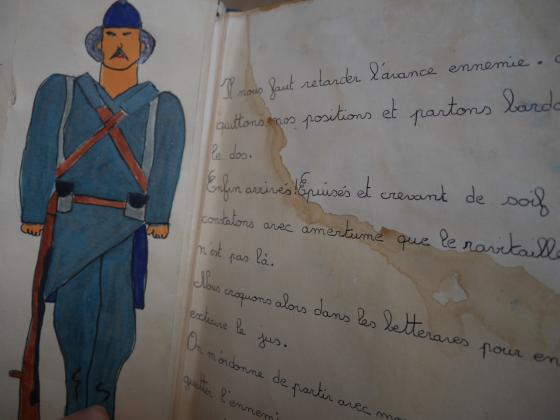 Il nous faut retarder l'avance ennemie.
quittons nos positions et partons
le dos.
Enfin arrivés! Épuisés et crevant de soif
constatons avec amertume que le
n'est pas là.
Nous croquons alors dans les betteraves pour en
extraire le jus.
On m'ordonne de partir avec
quitter l'ennemi